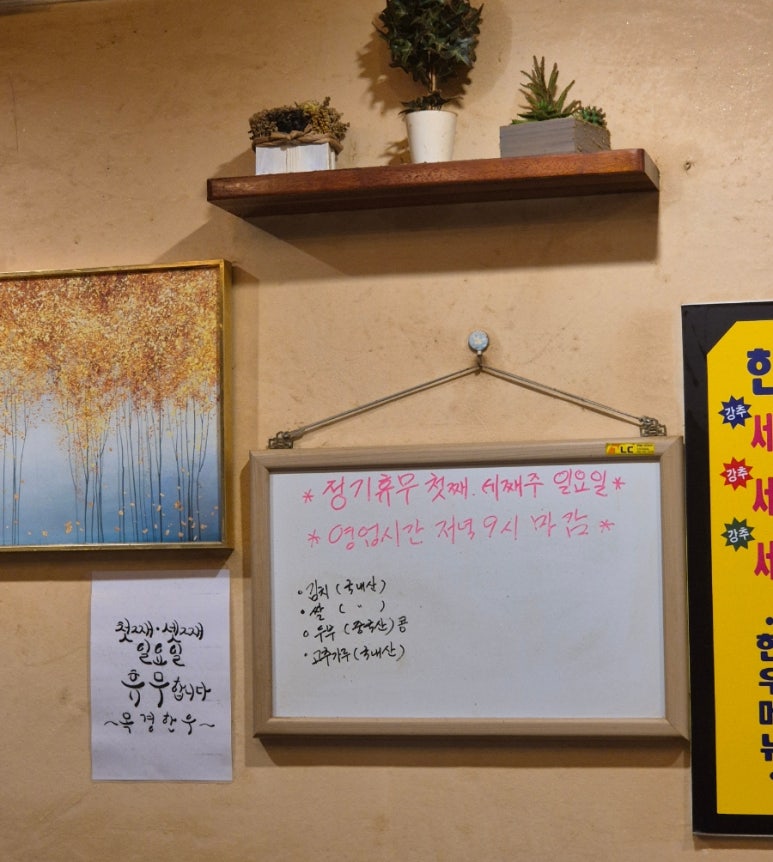 LC
* 정기휴무 첫째. 세째주 일요일 *
* 영업시간 저녁 9시 마감 *
• 김치 (국내산)
• 쌀 ( " )
• 두부 (중국산) 콩
• 고추가루 (국내산)
첫째·셋째
일요일
휴무합니다
~목경한우~
한
강추
세
강추
세
강추
세
한우메뉴